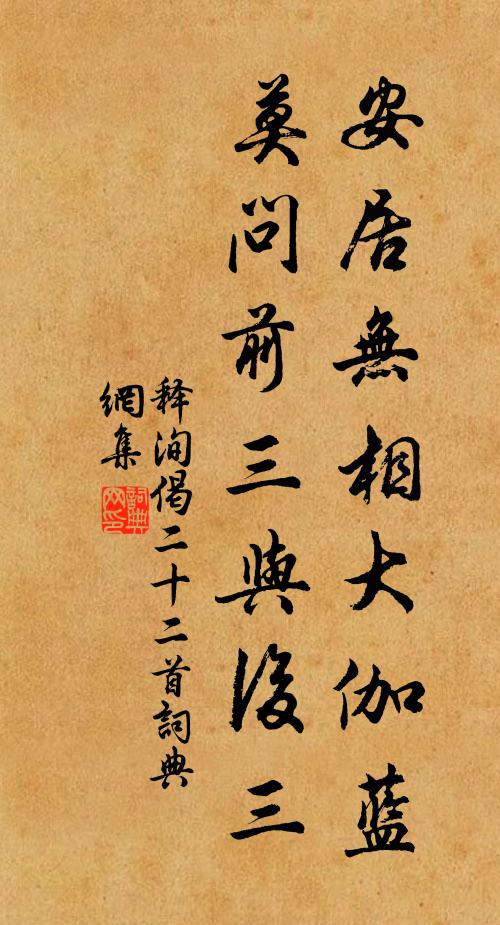 安居無相大伽藍
莫問前三與後三
释洵偈二十二首詞典
網集
詞典
网印